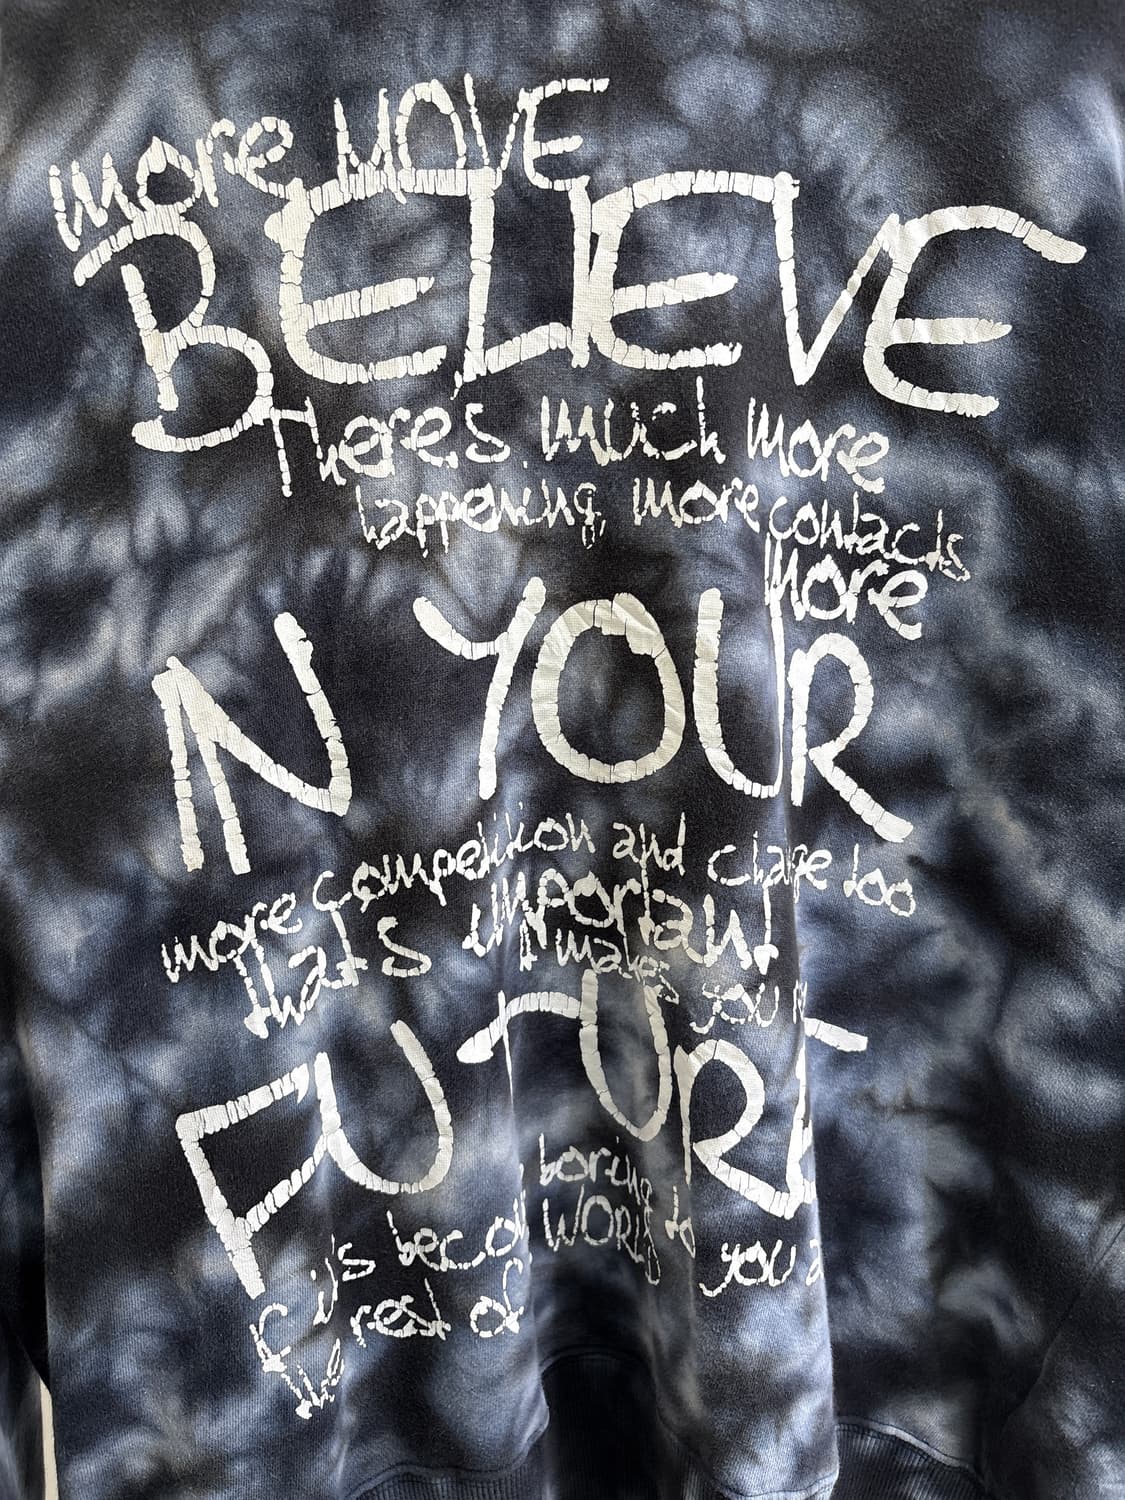 more MOVE
BELIEVE
There's much more
happening, more contacts
more
IN YOUR
more competition and chage too
that's important
it makes you
FUTURE
boring
is becom WORLD to you a
if
the rest of